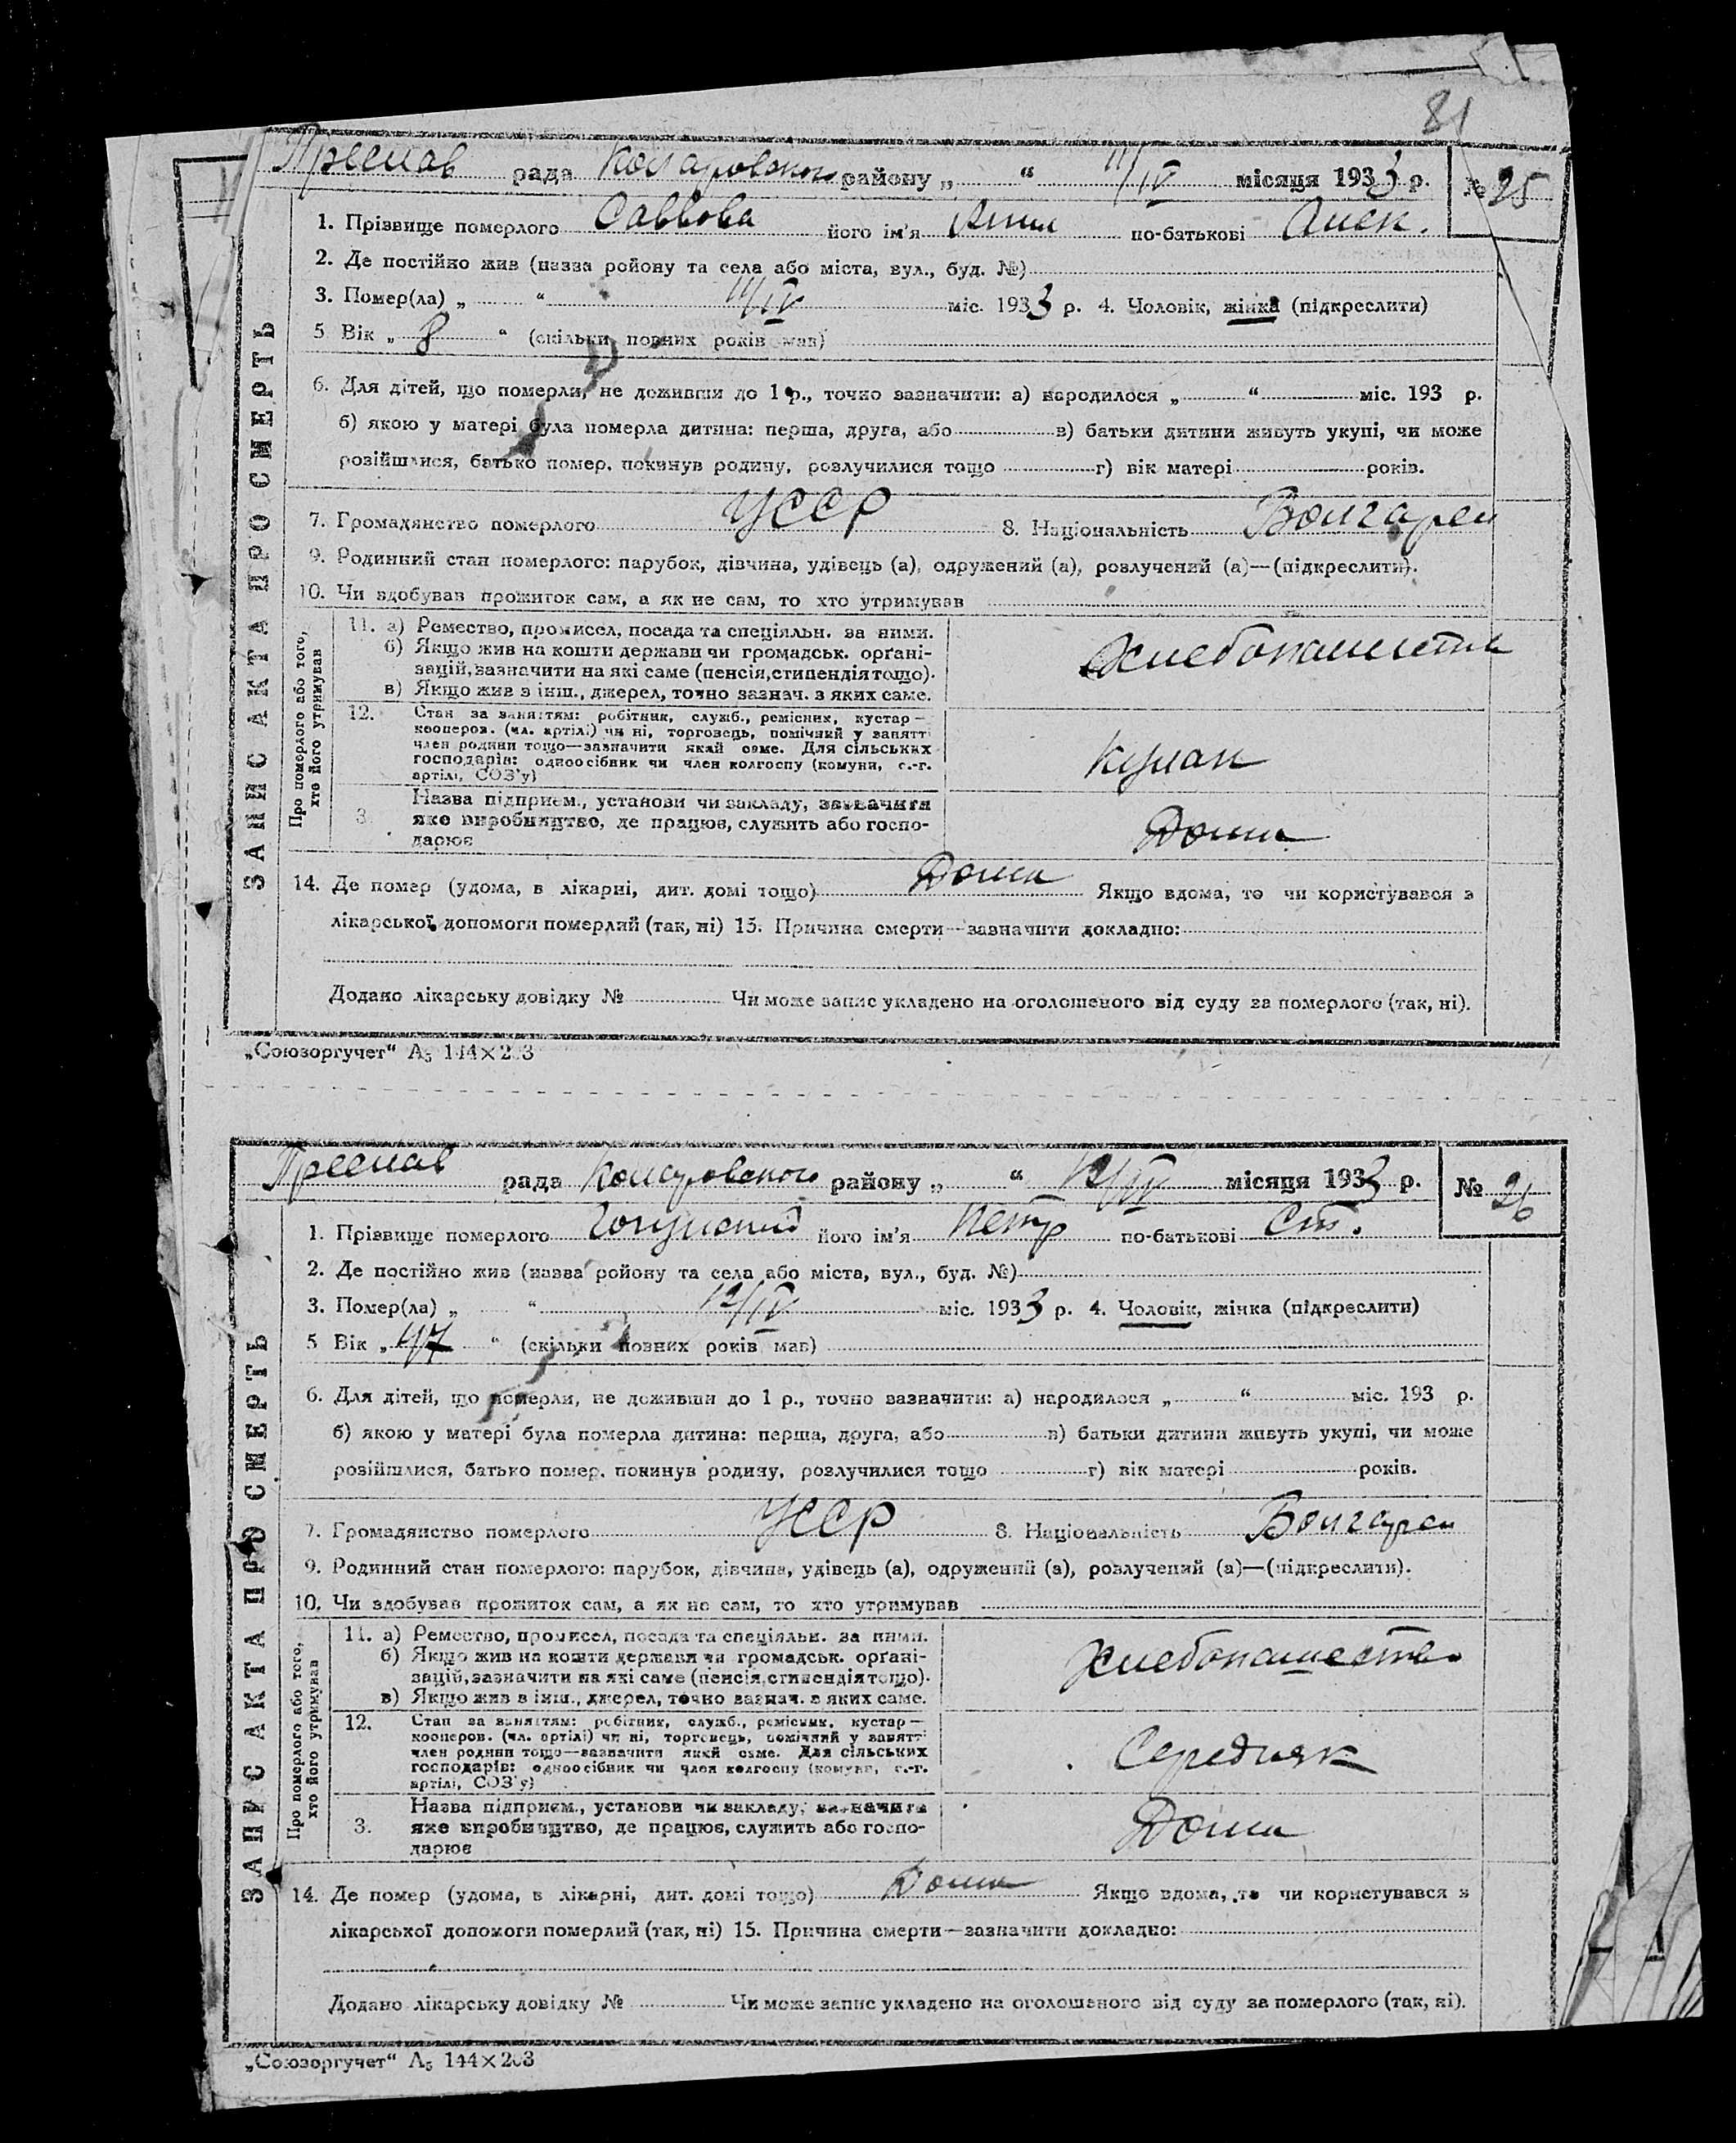 81
Преслав рада Коларовского району „ “ 11/IV місяця 1933 р. № 25
1. Прізвище померлого Саввова його ім'я Анна по-батькові Алек.
2. Де постійно жив (назва ройону та села або міста, вул., буд. №)
3. Помер(ла) „ “ 11/IV міс. 1933 р. 4. Чоловік, жінка (підкреслити)
5 Вік „ 8 “ (скільки повних років мав)
6. Для дітей, що померли, не доживши до 1 р., точно зазначити: а) народилося „ “ міс. 193 р.
б) якою у матері була померла дитина: перша, друга, або в) батьки дитини живуть укупі, чи може
розійшлися, батько помер, покинув родину, розлучилися тощо г) вік матері років.
7. Громадянство померлого УССР 8. Національність Болгарен
9. Родинний стан померлого: парубок, дівчина, удівець (а), одружений (а), розлучений (а)—(підкреслити).
10. Чи здобував прожиток сам, а як не сам, то хто утримував
ЗАПИС АКТА ПРО СМЕРТЬ
Про померлого або того,
хто його утримував
11. а) Ремество, промисел, посада та спеціяльн. за ними.
б) Якщо жив на кошти держави чи громадськ. орґані-
зацій, зазначити на які саме (пенсія, стипендія тощо).
в) Якщо жив з інш., джерел, точно зазнач. з яких саме.
Хлебопашество
12. Стан за заняттям: робітник, служб., ремісник, кустар—
кооперов. (чл. артілі) чи ні, торговець, помічний у занятті
член родини тощо—зазначити який саме. Для сільських
господарів: одноосібник чи член колгоспу (комуни, с.-г.
артілі, СОЗ'у)
Кулак
3. Назва підприєм., установи чи закладу, зазначити
яке виробництво, де працює, служить або госпо-
дарює
Дома
14. Де помер (удома, в лікарні, дит. домі тощо) Дома Якщо вдома, то чи користувався з
лікарської допомоги померлий (так, ні) 15. Причина смерти—зазначити докладно:
Додано лікарську довідку № Чи може запис укладено на оголошеного від суду за померлого (так, ні).
„Союзоргучет“ А₅ 144×203
Преслав рада Коларовского району „ “ 12/IV місяця 1933 р. № 26
1. Прізвище померлого його ім'я Петр по-батькові Ст.
2. Де постійно жив (назва ройону та села або міста, вул., буд. №)
3. Помер(ла) „ “ 12/IV міс. 1933 р. 4. Чоловік, жінка (підкреслити)
5 Вік „ 47 “ (скільки повних років мав)
6. Для дітей, що померли, не доживши до 1 р., точно зазначити: а) народилося „ “ міс. 193 р.
б) якою у матері була померла дитина: перша, друга, або в) батьки дитини живуть укупі, чи може
розійшлися, батько помер, покинув родину, розлучилися тощо г) вік матері років.
7. Громадянство померлого УССР 8. Національність Болгарен
9. Родинний стан померлого: парубок, дівчина, удівець (а), одружений (а), розлучений (а)—(підкреслити).
10. Чи здобував прожиток сам, а як не сам, то хто утримував
ЗАПИС АКТА ПРО СМЕРТЬ
Про померлого або того,
хто його утримував
11. а) Ремество, промисел, посада та спеціяльн. за ними.
б) Якщо жив на кошти держави чи громадськ. орґані-
зацій, зазначити на які саме (пенсія, стипендія тощо).
в) Якщо жив з інш., джерел, точно зазнач. з яких саме.
Хлебопашество
12. Стан за заняттям: робітник, служб., ремісник, кустар—
кооперов. (чл. артілі) чи ні, торговець, помічний у занятті
член родини тощо—зазначити який саме. Для сільських
господарів: одноосібник чи член колгоспу (комуни, с.-г.
артілі, СОЗ'у)
Середняк
3. Назва підприєм., установи чи закладу, зазначити
яке виробництво, де працює, служить або госпо-
дарює
Дома
14. Де помер (удома, в лікарні, дит. домі тощо) Дома Якщо вдома, то чи користувався з
лікарської допомоги померлий (так, ні) 15. Причина смерти—зазначити докладно:
Додано лікарську довідку № Чи може запис укладено на оголошеного від суду за померлого (так, ні).
„Союзоргучет“ А₅ 144×203